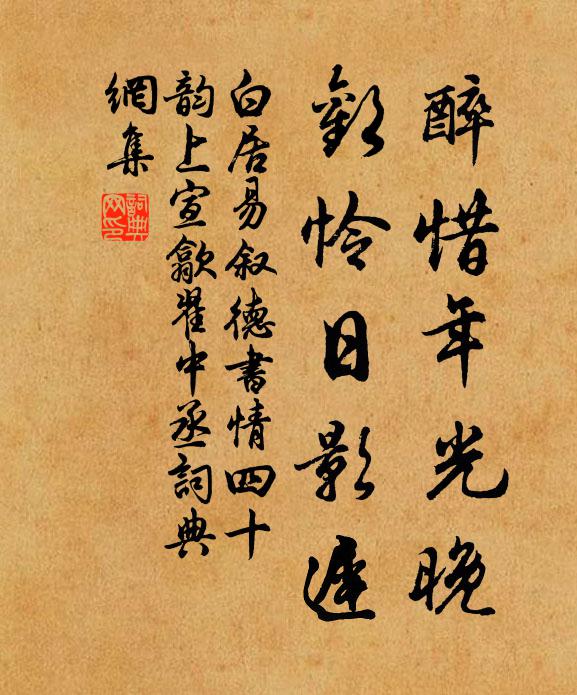 醉惜年光晚
歡怜日影遲
白居易叙德書情四十
韵上宣歙翟中丞詞典
網集
詞典
网印